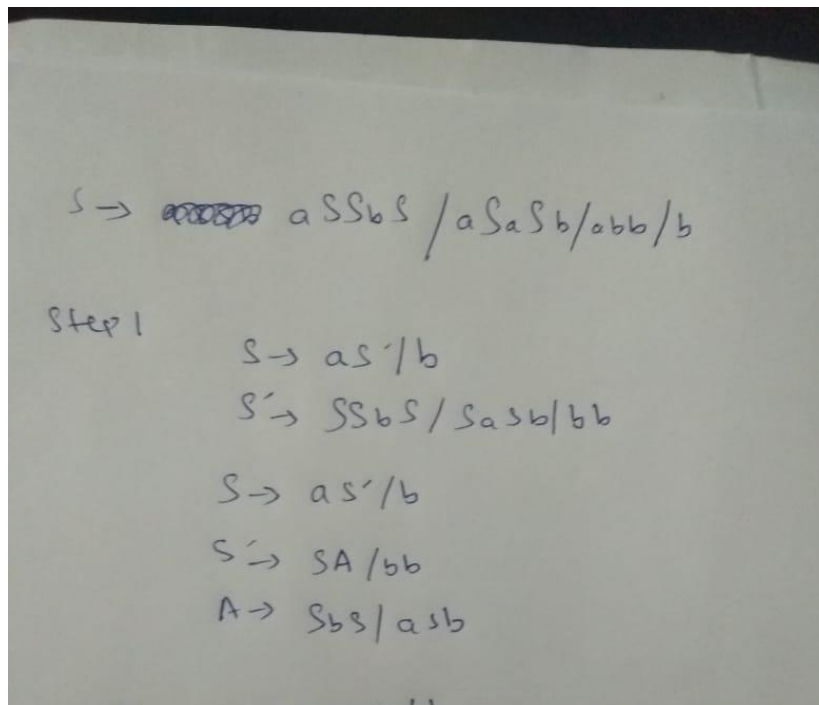 S→ aSSbS / aSaSb/abb/b
Step 1
S→ aS´/b
S´→ SSbS / SaSb/bb
S→ aS´/b
S´→ SA /bb
A→ SbS/ aSb